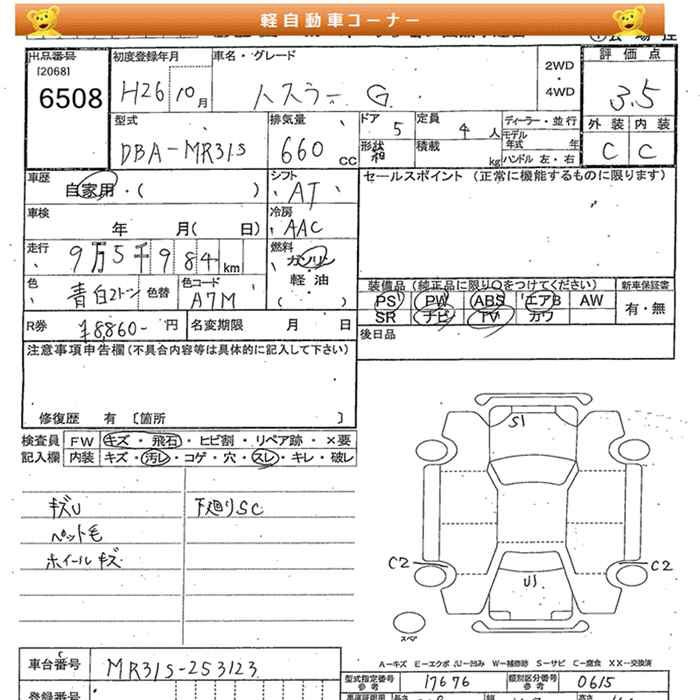 軽自動車コーナー
出品番号
[2068]
6508
初度登録年月
H26 10 月
車名・グレード
ハスラー G
2WD
・
4WD
評価点
3.5
外装 内装
C C
型式
DBA-MR31S
排気量
660 CC
ドア
5
形状
箱
定員
4 人
積載
kg
ディーラー・並行
モデル
年式 年
ハンドル 左・右
車歴
自家用・( )
シフト
AT
セールスポイント (正常に機能するものに限ります)
車検
年 月( 日)
冷房
AAC
走行
9万5千984 km
燃料
ガソリン
軽・油
( )
色
青白2トン
色替
色コード
A7M
装備品(純正品に限り○をつけてください)
新車保証書
PS PW ABS エアB AW
SR ナビ TV カワ
有・無
R券
¥8860- 円
名変期限 月 日
後日品
注意事項申告欄(不具合内容等は具体的に記入して下さい)
修復歴 有 〔箇所 〕
検査員
記入欄
FW キズ・飛石・ヒビ割・リペア跡・×要
内装 キズ・汚レ・コゲ・穴・スレ・キレ・破レ
キズU
ペット毛
ホイールキズ
下廻りSC
S1
C2
C2
U1
スペア
A-キズ E-エクボ U-凹み W-補修跡 S-サビ C-腐食 XX-交換済
車台番号
MR31S-253123
型式指定番号
参考
17676
類別区分番号
参考
0615
登録番号